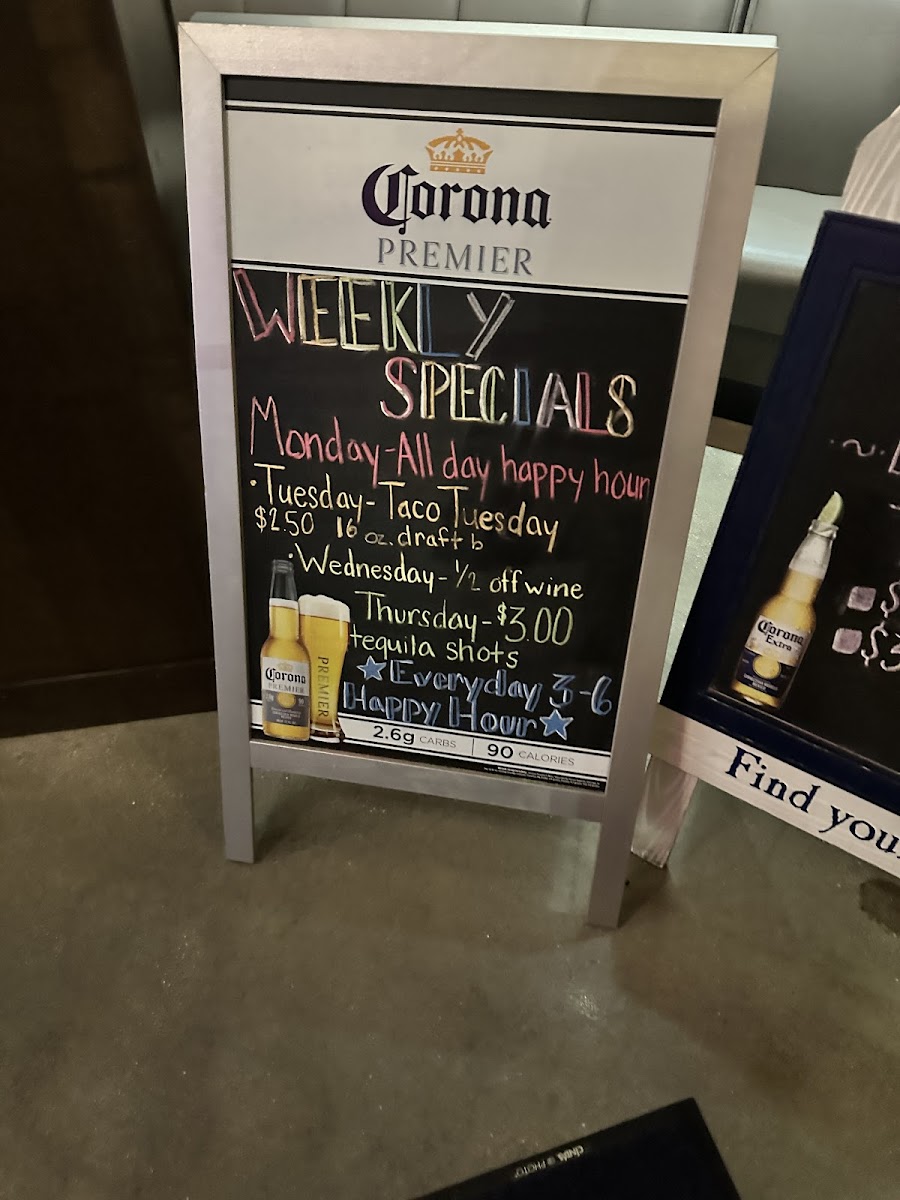 Corona
PREMIER
WEEKLY
SPECIALS
Monday-All day happy hour
·Tuesday-Taco Tuesday
$2.50 16 oz. draft b
·Wednesday-1/2 off wine
Thursday-$3.00
tequila shots
★Everyday 3-6
Happy Hour★
Corona
PREMIER
PREMIER
2.6g CARBS | 90 CALORIES
Corona
Extra
Find your